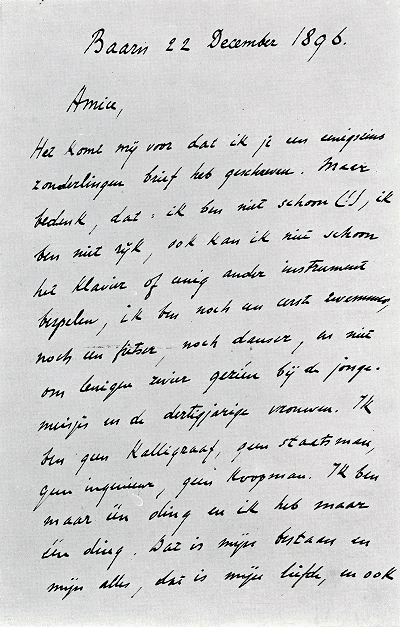 Baarn 22 December 1896.
Amice,
Het komt mij voor dat ik je een eenigszins
zonderlingen brief heb geschreven. Maar
bedenk, dat: ik ben niet schoon (!), ik
ben niet rijk, ook kan ik niet schoon
het klavier of eenig ander instrument
bespelen, ik ben noch een eerst zwemmer,
noch een fietser, noch danser, en niet
om lenigen zwier gezien bij de jonge-
meisjes en de dertigjarige vrouwen. Ik
ben geen Kalligraaf, geen staatsman,
geen ingenieur, geen Koopman. Ik ben
maar één ding en ik heb maar
één ding. Dat is mijn bestaan en
mijn alles, dat is mijn liefde, en ook